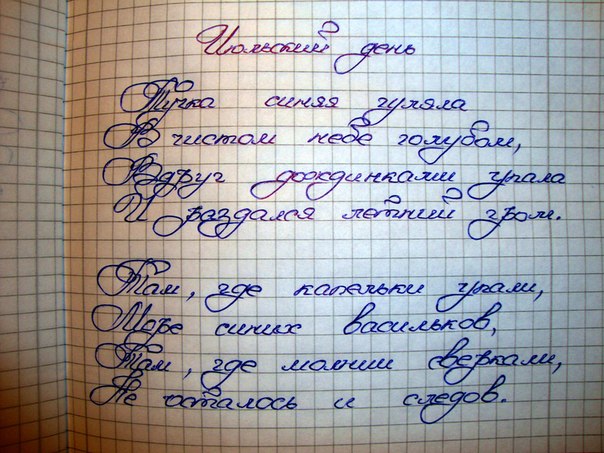 Июльский день
Тучка синяя гуляла
В чистом небе голубом,
Вдруг дождинками упала
И раздался летний гром.
Там, где капельки упали,
Море синих васильков,
Там, где молнии сверкали,
Не осталось и следов.